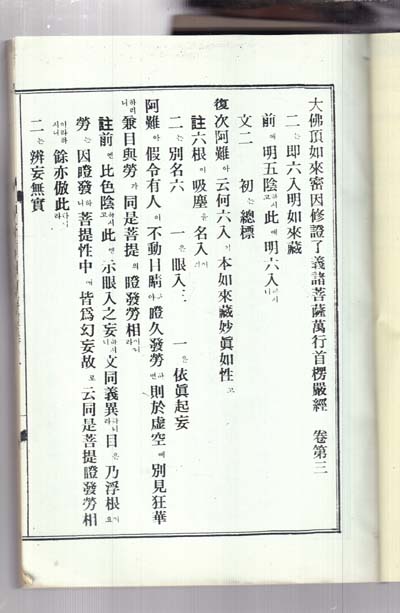 大佛頂如來密因修證了義諸菩薩萬行首楞嚴經 卷第三
二는即六入明如來藏
前에明五陰하시고此에明六入하시니
文二 初는總標
復次阿難아云何六入이本如來藏妙眞如性고
註六根이吸塵을名入이라
二는別名六 一은眼入三 一은依眞起妄
阿難아假令有人이不動目睛하야瞪久發勞하면則於虛空에別見狂華
하리니兼目與勞가同是菩提의瞪發勞相이라
註前엔比色陰하시고此엔示眼入之妄하시니文同義異하니라目은乃浮根이요
勞는因瞪發하니菩提性中에皆爲幻妄故로云同是菩提瞪發勞相
이라하시니餘亦倣此하다
二는辨妄無實